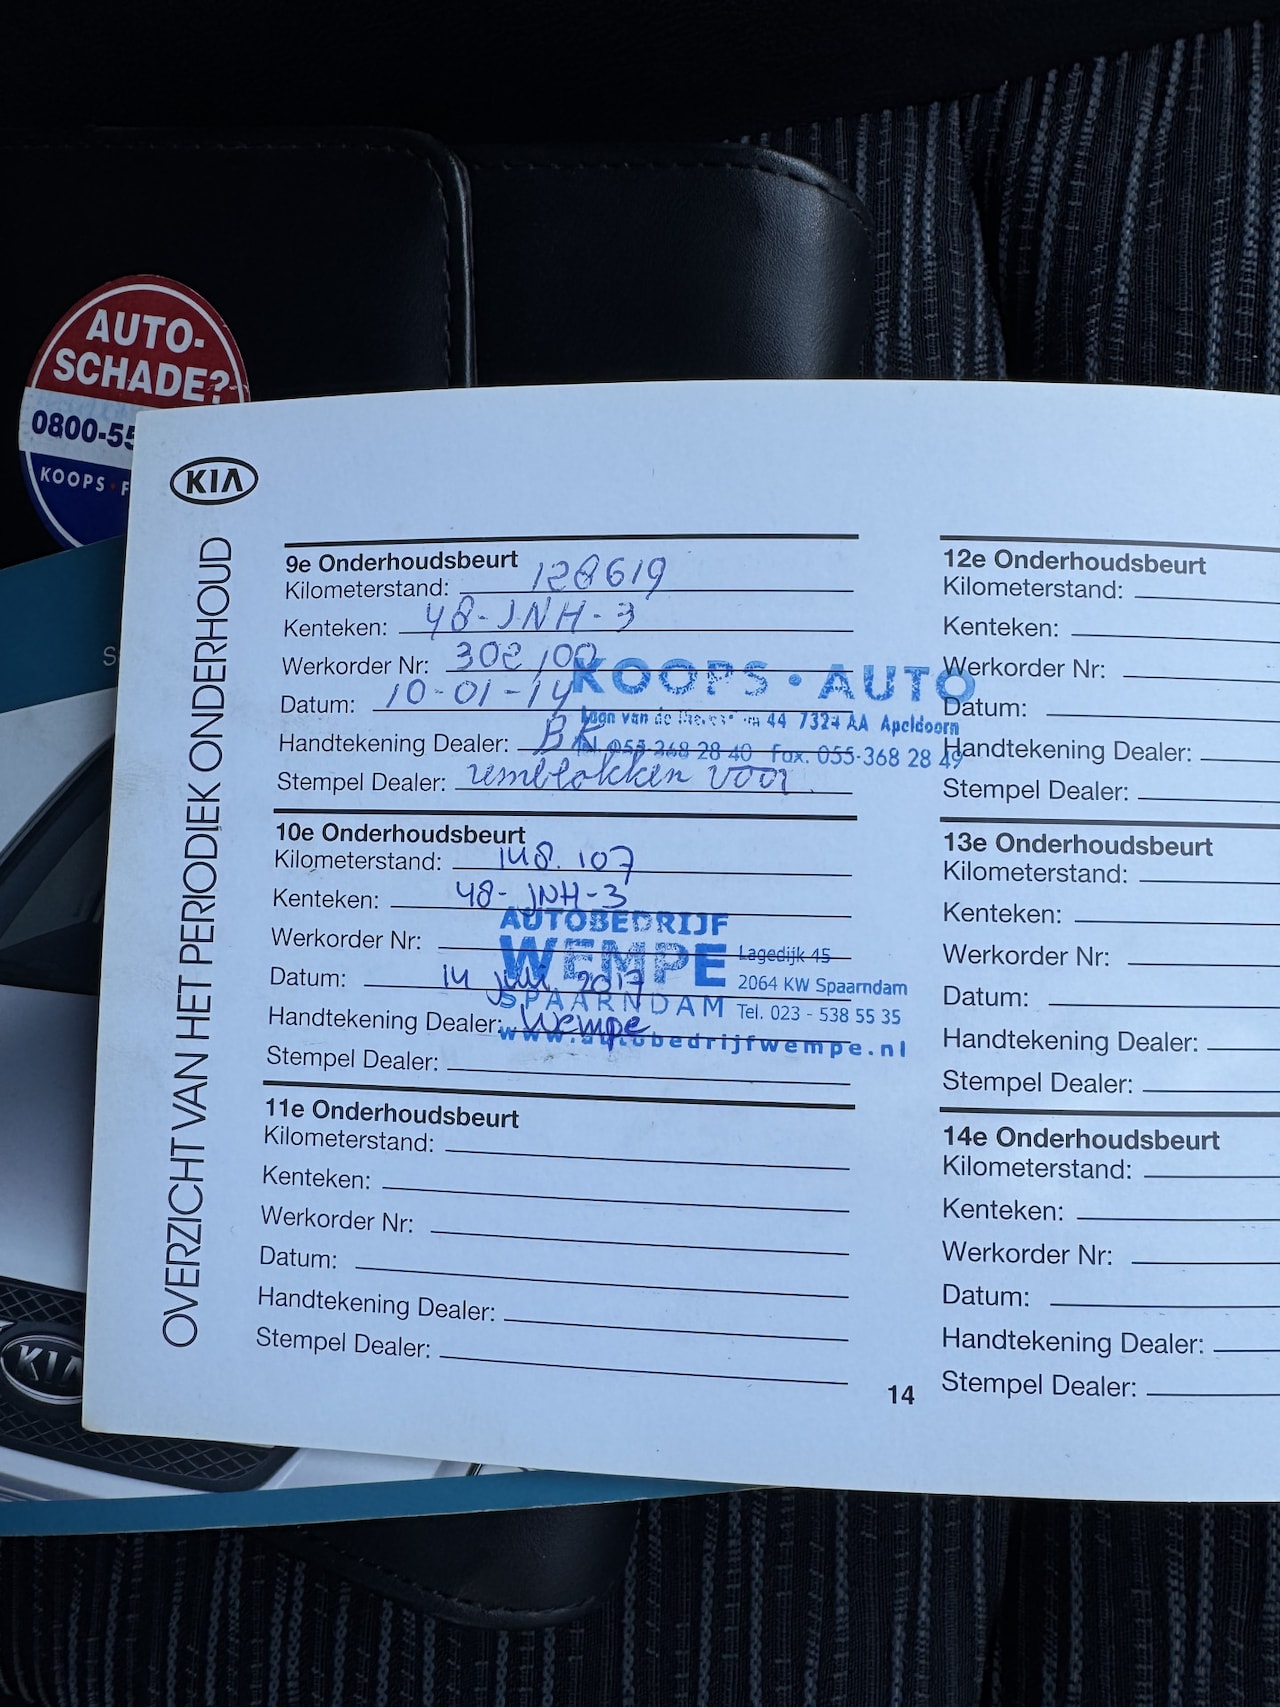 AUTO-
SCHADE?
0800-55
KOOPS
KIA
OVERZICHT VAN HET PERIODIEK ONDERHOUD
9e Onderhoudsbeurt
Kilometerstand: 128619
Kenteken: 48-JNH-3
Werkorder Nr: 302100
Datum: 10-01-14
Handtekening Dealer: BK
Stempel Dealer: remblokken voor
KOOPS • AUTO
van de 44 7324 AA Apeldoorn
Tel. 055-368 28 40 Fax. 055-368 28 49
10e Onderhoudsbeurt
Kilometerstand: 148.107
Kenteken: 48-JNH-3
Werkorder Nr:
Datum: 14 juli 2017
Handtekening Dealer: Wempe
Stempel Dealer:
AUTOBEDRIJF
WEMPE
SPAARNDAM
Lagedijk 45
2064 KW Spaarndam
Tel. 023 - 538 55 35
www.autobedrijfwempe.nl
11e Onderhoudsbeurt
Kilometerstand:
Kenteken:
Werkorder Nr:
Datum:
Handtekening Dealer:
Stempel Dealer:
14
12e Onderhoudsbeurt
Kilometerstand:
Kenteken:
Werkorder Nr:
Datum:
Handtekening Dealer:
Stempel Dealer:
13e Onderhoudsbeurt
Kilometerstand:
Kenteken:
Werkorder Nr:
Datum:
Handtekening Dealer:
Stempel Dealer:
14e Onderhoudsbeurt
Kilometerstand:
Kenteken:
Werkorder Nr:
Datum:
Handtekening Dealer:
Stempel Dealer:
KIA